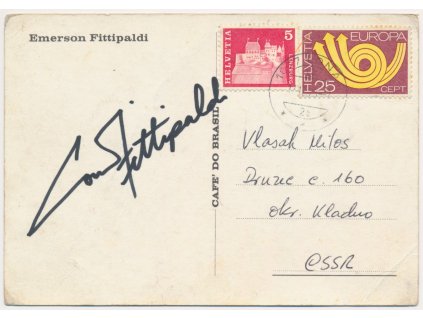 Emerson Fittipaldi
HELVETIA
5
LENZBURG
EUROPA
HELVETIA
25
CEPT
Fittipaldi
CAFE' DO BRASIL
Vlasak Milos
Druzec e. 160
okr. Kladno
ČSSR